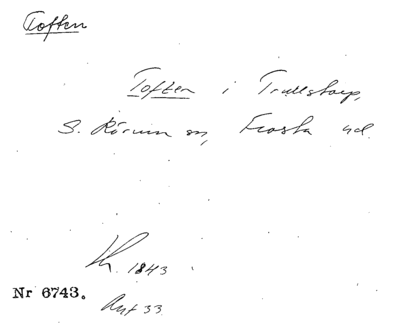 Toften
Toften i Trullstorp,
S. Rörum sn, Frosta hd.
Kr. 1843
Nr 6743.
Avf 33